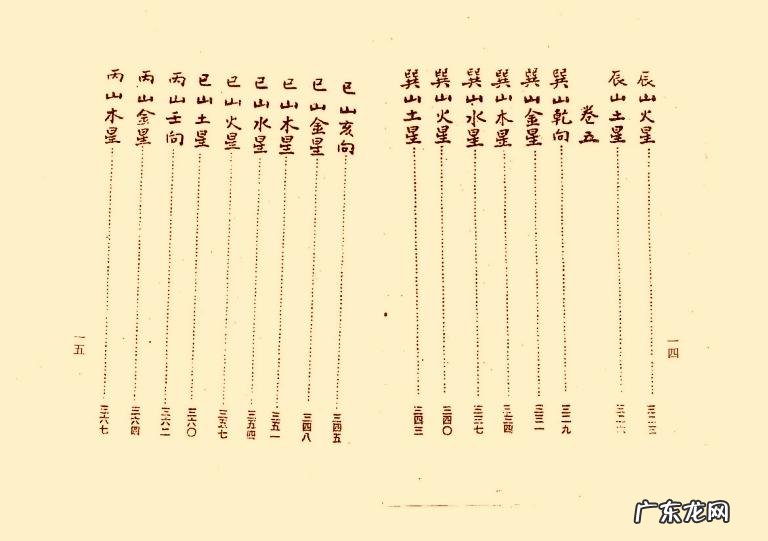 辰山火星……三二三
辰山土星……三二六
卷五
巽山乾向……三二九
巽山金星……三三一
巽山木星……三三四
巽山水星……三三七
巽山火星……三四〇
巽山土星……三四三
一四
巳山亥向……三四五
巳山金星……三四八
巳山木星……三五一
巳山水星……三五四
巳山火星……三五七
巳山土星……三六〇
丙山壬向……三六二
丙山金星……三六四
丙山木星……三六七
一五
广东龙网